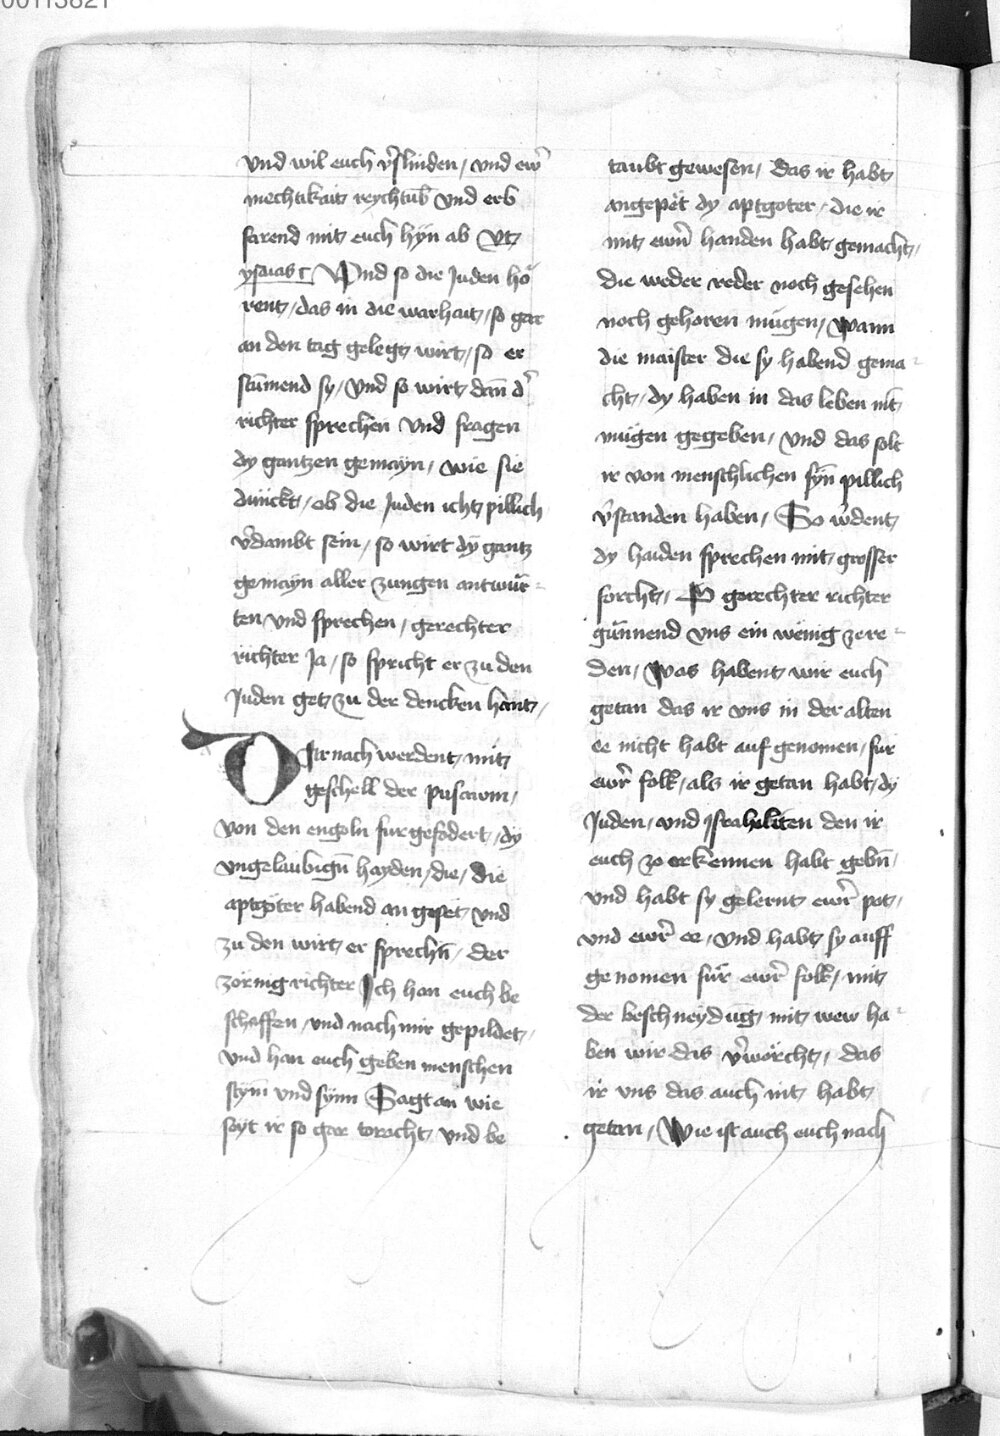 00113821
vnd wil euch v̓slinden / vnd ew̓
mechtikait reychtūb vnd erb
farend mit euch hyn ab Vt
ysaias c Vnd so die Juden hö
rent / das in die warhait / so gar
an den tag gelegt wirt / so er
stūmend sy / Vnd so wirt dan̄ d̓
richter sprechen Vnd fragen
dy gantzen gemayn / wie sie
dunckt / ob die Juden icht pillich
v̓dambt sein / so wirt dy gantz
gemayn aller zungen antwur-
ten vnd sprechen / gerechter
richter Ja / so spricht er zu den
Juden get zu der dencken hant /
Darnach werdent mit
geschell der pusawm /
von den engeln fur gefodert / dy
vngelaubign̄ hayden / die / die
aptgöter habend an gepet vnd
zu den wirt er sprechn̄ / der
zörnig richter Ich han euch be
schaffen / vnd nach mir gepildet /
Vnd han euch geben menschen
stym̄ vnd synn Sagt an wie
seyt ir so gar toracht vnd be
taubt gewesen / das ir habt
angepet dy aptgoter / die ir
mit ewrn̄ handen habt gemacht /
die weder reder noch gesehen
noch gehoren mugen / wann
die maister die sy habend gema-
cht / dy haben in das leben nit
mugen gegeben / vnd das solt
ir von menschlichen syn̄ pillich
v̓standen haben / So w̓dent
dy haiden sprechen mit grosser
forcht / O gerechter richter
gunnend vns ein wenig zere-
den / Was habent wir euch
getan das ir vns in der alten
ee nicht habt auf genomen / fur
ewr̓ folk / als ir getan habt / dy
Juden / vnd israheliten den ir
euch zo erkennen habt gebn̄ /
vnd habt sy gelernt ewr̓ pot /
vnd ewr̓ ee / vnd habt sy auff
genomen fur ewr̓ folk / mit
der beschneydūg / mit wew ha-
ben wir das v̓worcht / das
ir vns das auch nit habt
getan / Wie ist auch euch nach